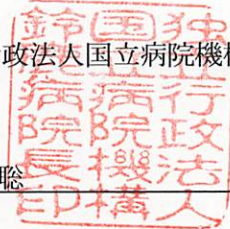 政法人国立病院機構
聡
独立行政法人
国立病院機構
鈴鹿病院長印